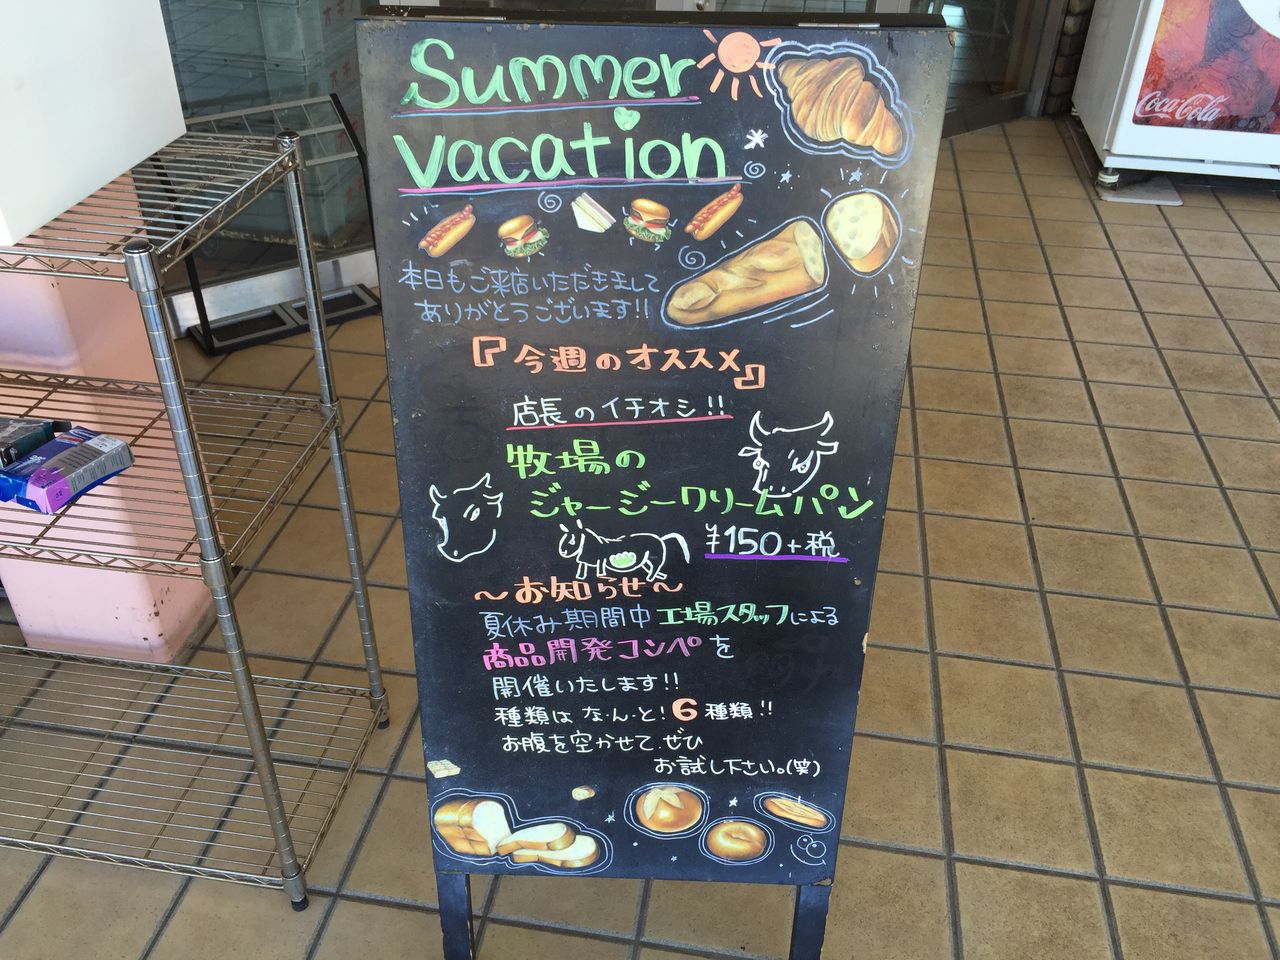 Summer
vacation
本日もご来店いただきまして
ありがとうございます!!
『今週のオススメ』
店長のイチオシ!!
牧場の
ジャージークリームパン
¥150+税
～お知らせ～
夏休み期間中工場スタッフによる
商品開発コンペを
開催いたします!!
種類はな・ん・と!6種類!!
お腹を空かせて、ぜひ
お試し下さい。(笑)
Coca-Cola